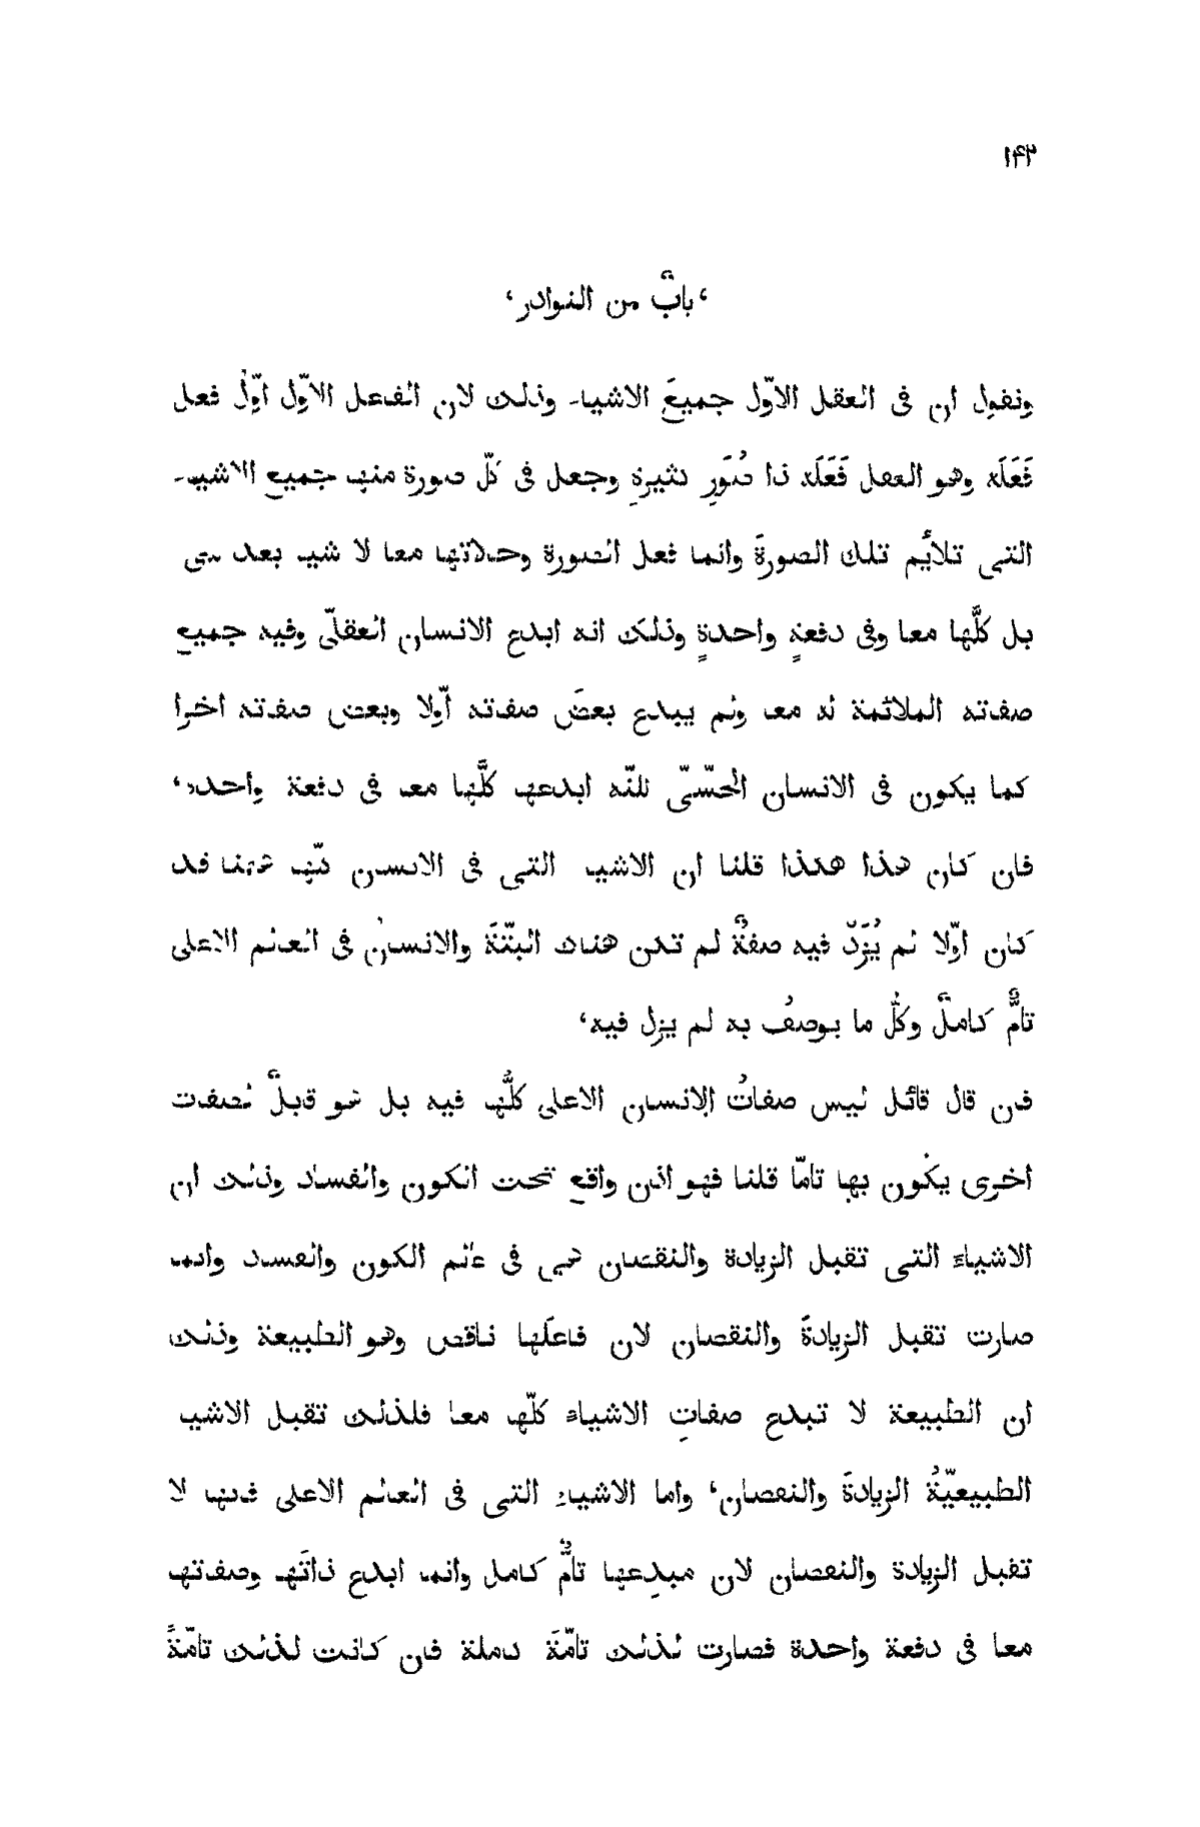 ١٤٢
‘بابٌ من النوادر‘
ونقول ان فى العقل الاوّل جميعَ الاشياء وذلك لان الفاعل الاوّل اوّلُ فعل
فَعَلَه وهو العقل فَعَلَه ذا صُوَرٍ كثيرةٍ وجعل فى كلّ صورة منها جميع الاشياء
التى تلائُم تلك الصورةَ وانما فعل الصورة وحالاتها معا لا شيا بعد شى
بل كلَّها معا وفى دفعةٍ واحدةٍ وذلك انه ابدع الانسان العقلىّ وفيه جميع
صفاته الملائمة له معا ولم يبدع بعضَ صفاته اوّلا وبعض صفاته اخرا
كما يكون فى الانسان الحسّىّ لكنّه ابدعها كلَّها معا فى دفعة واحده‘
فان كان هذا هكذا قلنا ان الاشيا التى فى الانسان كلّها هاهنا قد
كان اوّلا لم يُزَدْ فيه صفةٌ لم تكن هناك البتّةَ والانسانُ فى العالم الاعلى
تامٌّ كاملٌ وكلُّ ما يوصفُ به لم يزل فيه‘
فان قال قائل ليس صفاتُ الانسان الاعلى كلُّها فيه بل هو قابلٌ لصفات
اخرى يكون بها تامّا قلنا فهو اذن واقع تحت الكون والفساد وذلك ان
الاشياءَ التى تقبل الزيادة والنقصان هى فى عالم الكون والفساد وانما
صارت تقبل الزيادةَ والنقصان لان فاعلَها ناقص وهو الطبيعة وذلك
ان الطبيعة لا تبدع صفاتِ الاشياء كلّها معا فلذلك تقبل الاشيا
الطبيعيّةُ الزيادةَ والنقصان‘ واما الاشياء التى فى العالم الاعلى فانها لا
تقبل الزيادة والنقصان لان مبدِعها تامٌّ كامل وانما ابدع ذاتَها وصفاتها
معا فى دفعة واحدة فصارت لذلك تامّةَ كاملة فان كانت لذلك تامّةً